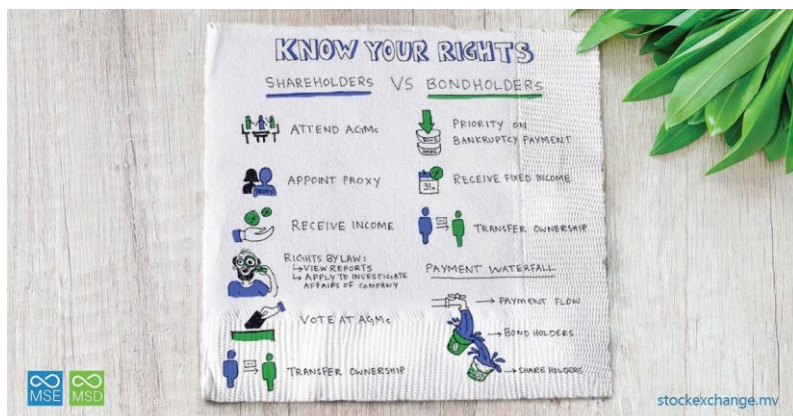 KNOW YOUR RIGHTS
SHAREHOLDERS VS BONDHOLDERS
ATTEND AGMs
APPOINT PROXY
RECEIVE INCOME
RIGHTS BY LAW:
↳ VIEW REPORTS
↳ APPLY TO INVESTIGATE
AFFAIRS OF COMPANY
VOTE AT AGMs
TRANSFER OWNERSHIP
PRIORITY ON
BANKRUPTCY PAYMENT
31
RECEIVE FIXED INCOME
TRANSFER OWNERSHIP
PAYMENT WATERFALL
→ PAYMENT FLOW
→ BOND HOLDERS
→ SHARE HOLDERS
MSE MSD
stockexchange.mv